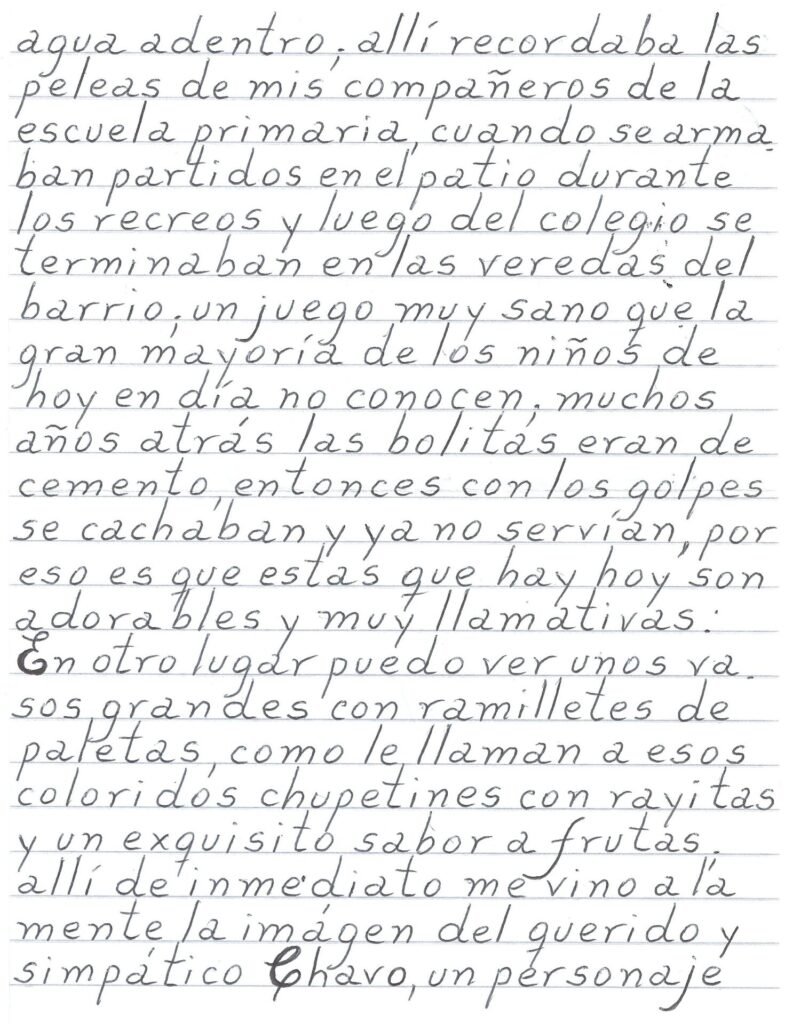 agua adentro; allí recordaba las
peleas de mis compañeros de la
escuela primaria, cuando se arma-
ban partidos en el patio durante
los recreos y luego del colegio se
terminaban en las veredas del
barrio; un juego muy sano que la
gran mayoría de los niños de
hoy en día no conocen; muchos
años atrás las bolitas eran de
cemento, entonces con los golpes
se cachaban y ya no servían, por
eso es que estas que hay hoy son
adorables y muy llamativas.
En otro lugar puedo ver unos va-
sos grandes con ramilletes de
paletas, como le llaman a esos
coloridos chupetines con rayitas
y un exquisito sabor a frutas.
allí de inmediato me vino a la
mente la imágen del querido y
simpático Chavo, un personaje